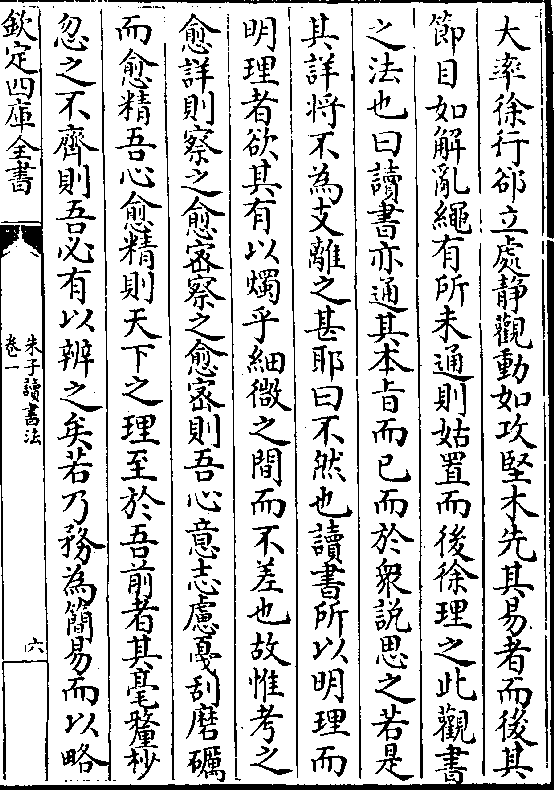 大率徐行郤立處静觀動如攻堅木先其易者而後其
節目如解亂繩有所未通則姑置而後徐理之此觀書
之法也曰讀書亦通其本旨而已而於衆說思之若是
其詳將不為支離之甚耶曰不然也讀書所以明理而
明理者欲其有以燭乎細微之間而不差也故惟考之
愈詳則察之愈宻察之愈宻則吾心意志慮戞刮磨礪
而愈精吾心愈精則天下之理至於吾前者其毫釐杪
忽之不齊則吾必有以辨之矣若乃務為簡易而以略
欽定四庫全書
朱子讀書法
卷一
六